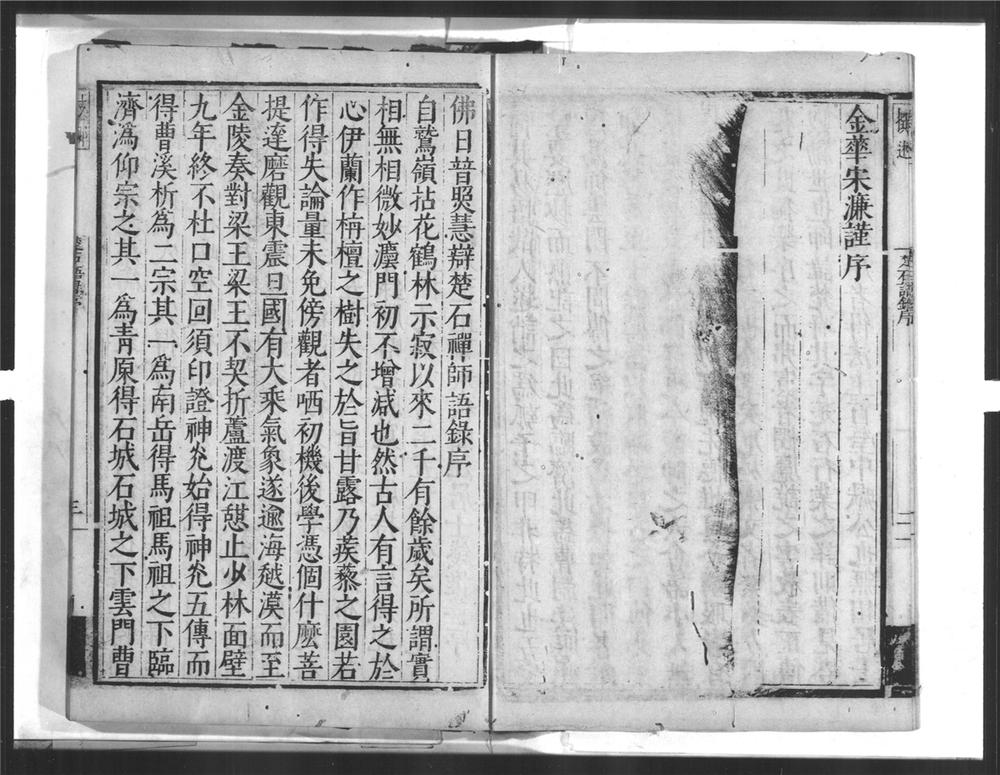 撰述
金華宋濂謹序
楚石語錄序
二
佛日普照慧辯楚石禪師語錄序
自鷲嶺拈花鶴林示寂以來二千有餘歲矣所謂實
相無相微妙灋門初不增减也然古人有言得之於
心伊蘭作栴檀之樹失之於旨甘露乃蒺藜之園若
作得失論量未免傍觀者哂初機後學憑個什麼菩
提達磨觀東震旦國有大乘氣象遂逾海越漠而至
金陵奏對梁王梁王不契折蘆渡江憇止少林面壁
九年終不杜口空回須印證神光始得神光五傳而
得曹溪析爲二宗其一爲南岳得馬祖馬祖之下臨
濟潙仰宗之其一爲靑原得石城石城之下雲門曹
三